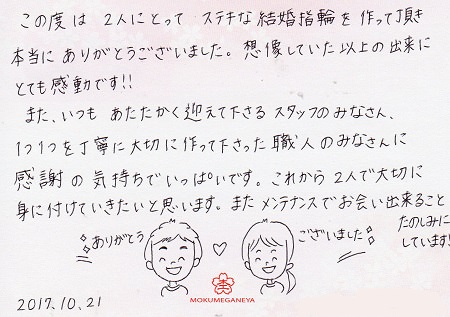 この度は 2人にとって ステキな結婚指輪を作って頂き
本当に ありがとうございました。想像していた以上の出来に
とても感動です!!
また、いつも あたたかく迎えて下さる スタッフのみなさん、
1つ1つを丁寧に大切に作って下さった職人のみなさんに
感謝の気持ちでいっぱいです。これから 2人で大切に
身に付けていきたいと思います。また メンテナンスでお会い出来ること
たのしみに
しています!!
ありがとう
ございました
MOKUMEGANEYA
2017.10.21